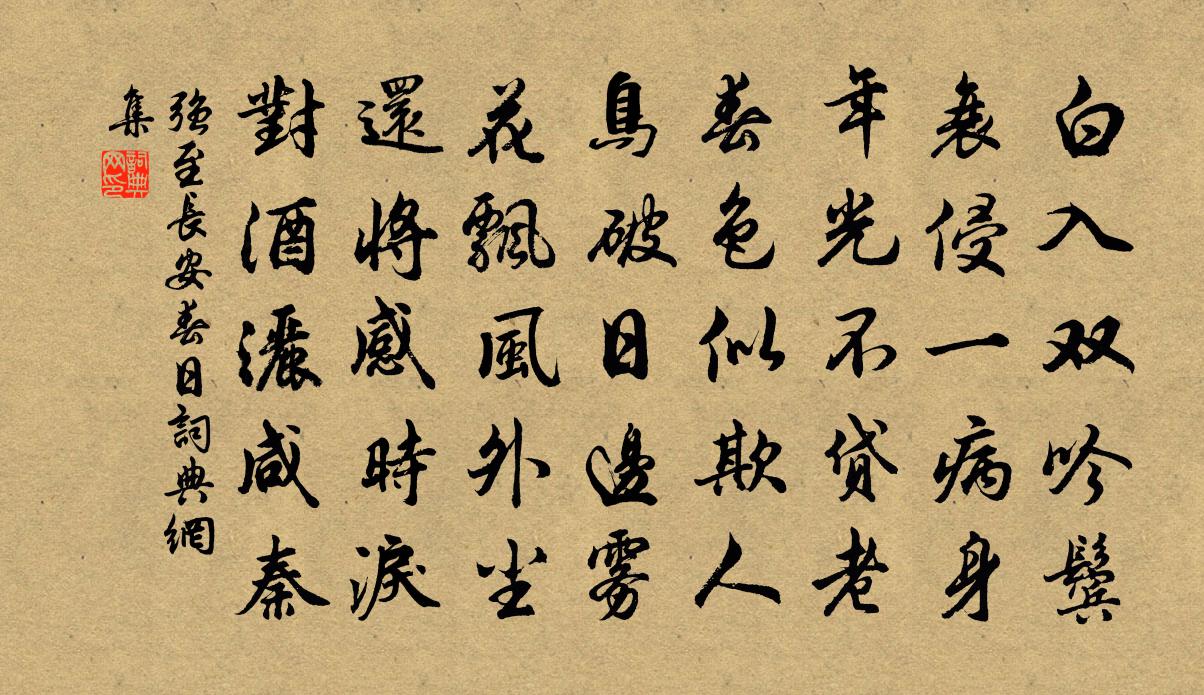 白入双吟鬓
衰侵一病身
年光不贷老
春色似欺人
鳥破日邊雾
花飄風外尘
還將感時淚
對酒灑咸秦
強至長安春日詞典網
集
詞典
网印